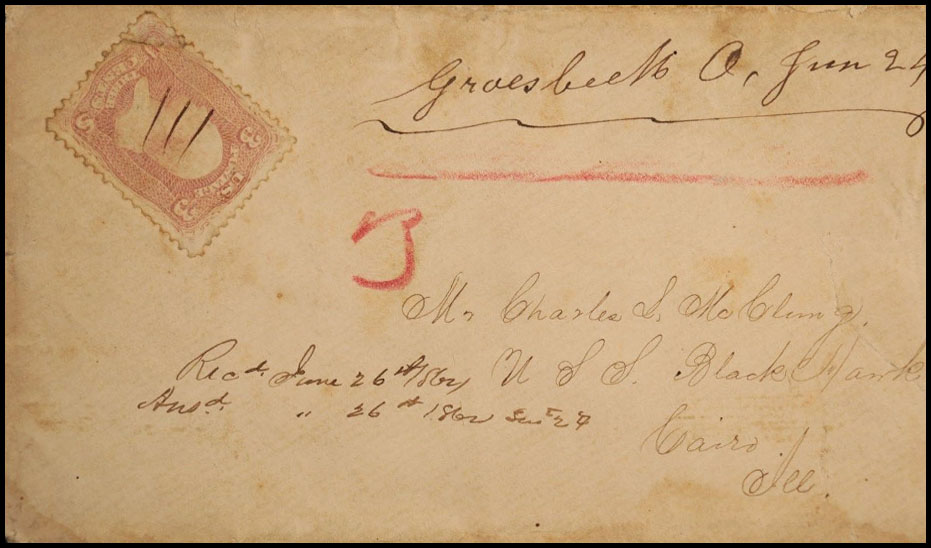 Groesbeck O, Jun 24
3
Mr Charles S. McClung.
Recd. June 26th 1864 U S S. Black Hawk
Ansd. " 26th 1864
Cairo.
Ill.